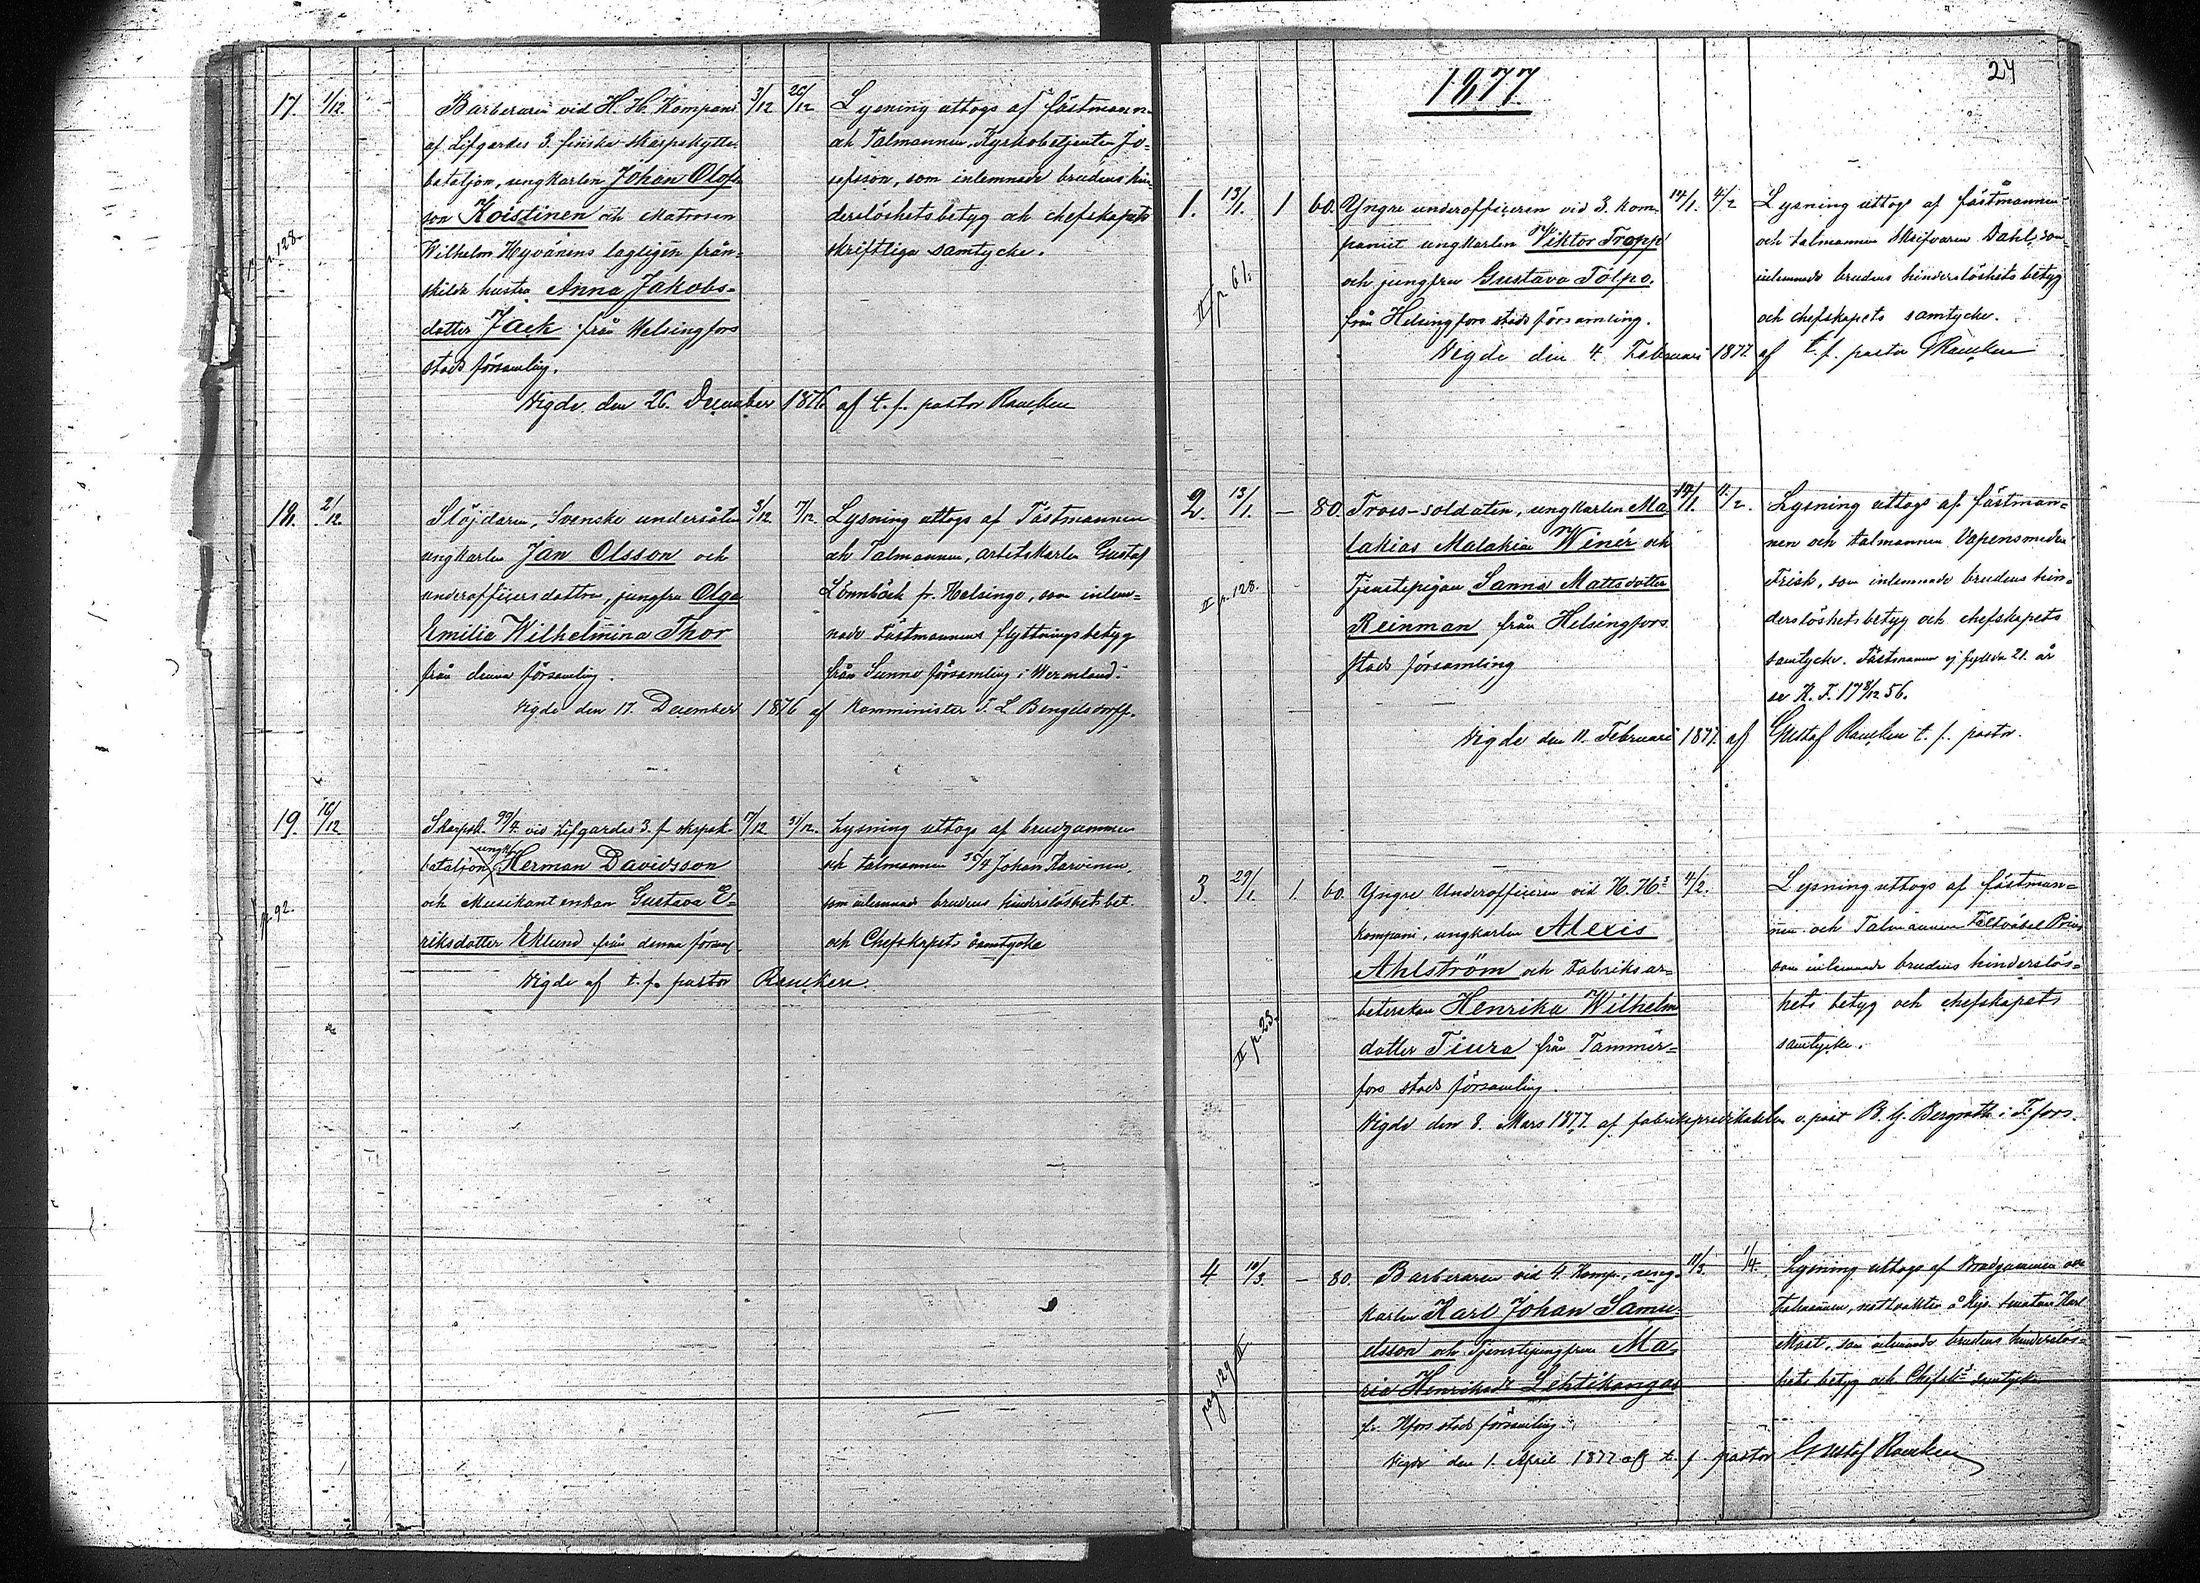 17. 1/12 Barberaren vid H. H. Kompani 3/12 26/12 Lysning uttogs af fästmannen
af Lifgardes 3. finska skarpskytte- och Talmannen, Kyrkobetjenten Jo-
bataljon, ungkarlen Johan Olofs- sefsson, som inlemnade brudens hin-
son Koistinen och Matrosen derslöshetsbetyg och chefskapets
p. 128. Wilhelm Hyvänens lagligen från- skriftliga samtycke.
skilda hustru Anna Jakobs-
dotter Jack från Helsingfors
stads församling.
Vigde den 26. December 1876 af t. f. pastor Rancken
18. 2/12 Slöjdaren, Svenske undersåten 3/12 17/12. Lysning uttogs af Fästmannen
ungkarlen Jan Olsson och och Talmannen, arbetskarlen Gustaf
underofficersdottren, jungfru Olga Lönnbäck fr. Helsinge, som inlem-
Emilia Wilhelmina Thor nade Fästmannens flyttningsbetyg
från denna församling. från Sunne församling i Wermland.
Vigde den 17. December 1876 af Komminister T. L. Bengelsdorff.
19. 16/12 Skarpsk. 99/4 vid Lifgardes 3. f. skrpsk. 17/12 31/12. Lysning uttogs af brudgummen
bataljon, ungk. Herman Davidsson och talmannen 35/4 Johan Tarvinen,
p. 92. och Musikantenkan Gustava E- som inlemnade brudens hinderslöshetsbet.
riksdotter Eklund från denna församl. och Chefskapets samtycke
Vigde af t. f. pastor Rancken.
24
1877
1. 13/1. 1 60. Yngre underofficeren vid 3. kom- 14/1. 4/2 Lysning uttogs af fästmannen
paniet ungkarlen Viktor Tropp och talmannen Skrifvaren Dahl, som
II p. 61. och jungfru Gustava Tölpo. inlemnade brudens hinderslöshetsbetyg
från Helsingfors stads församling. och chefskapets samtycke.
Vigde den 4. Februari 1877. af t. f. pastor GRancken
2. 13/1. – 80. Tross-soldaten, ungkarlen Ma- 14/1. 11/2. Lysning uttogs af fästman-
lakias Malakias Winer och nen och talmannen Vapensmeden
II p. 128. Tjenstepigan Sanna Mattsdotter Frisk, som inlemnade brudens hin-
Reinman från Helsingfors derslöshetsbetyg och chefskapets
stads församling samtycke. Fästmannen ej fyllda 21. år
se K. F. 17 8/12 56.
Vigde den 11. Februari 1877. af Gustaf Rancken t. f. pastor.
3. 29/1. 1. 60. Yngre Underofficeren vid H. H:s 4/2. Lysning uttogs af fästman-
kompani, ungkarlen Alexis nen och Talmannen Fältväbel
Ahlström och Fabriksar- som inlemnade brudens hinderslös-
beterskan Henrika Wilhelms- hets betyg och chefskapets
II p 23. dotter Tiura från Tammer- samtycke.
fors stads församling.
Vigde den 8. Mars 1877. af fabrikspredikanten v. past B. H. Bergroth i T:fors.
4 10/3. – 80. Barberaren vid 4. Komp., ung- 11/3. 1/4. Lysning uttogs af Brudgummen och
karlen Karl Johan Samu- talmannen, nattvakten å Kejs. senaten Karl
elsson och Tjenstejungfrun Ma- som inlemnade brudens hinderslös-
ria Henriksdr Lehtikangas hets betyg och Chefsk:s samtycke
pag 129 II fr. Hfors stads församling.
Vigde den 1. April 1877 af t. f. pastor Gustaf Rancken